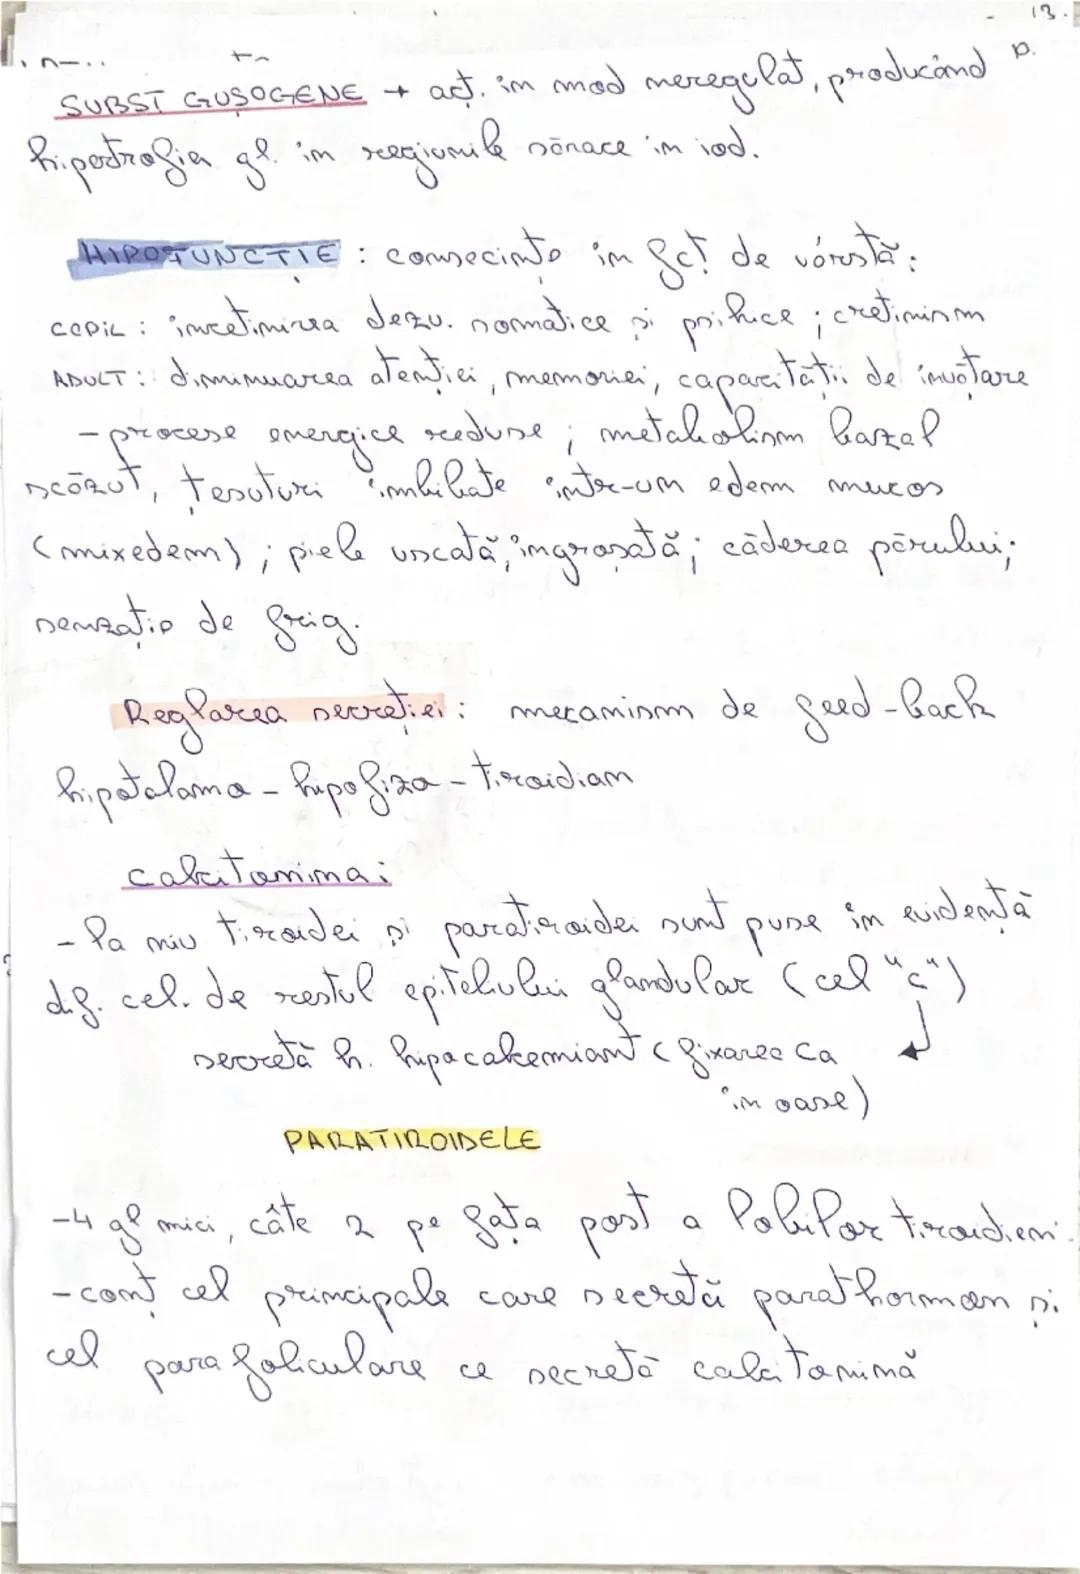 13.
SUBST GUȘOGENE → acț. în mod neregulat, producând
hipertrofia gl. în regiunile sărace în iod.
HIPOFUNCȚIE : consecințe în fcț de vârstă:
COPIL : încetinirea dezv. somatice și psihice ; cretinism
ADULT : diminuarea atenției, memoriei, capacității de învățare
- procese energice reduse ; metabolism bazal
scăzut, țesuturi îmbibate într-un edem mucos
(mixedem) ; piele uscată, îngroșată ; căderea părului ;
senzație de frig.
Reglarea secreției : mecanism de feed-back
hipotalamo - hipofizo - tiroidian
calcitonina :
- la niv tiroidei și paratiroidei sunt puse în evidență
dif. cel. de restul epiteliului glandular (cel "c")
secretă h. hipocalcemiant (fixarea Ca
în oase)
PARATIROIDELE
-4 gl mici, câte 2 pe fața post a lobilor tiroidieni.
-conț cel principale care secretă parathormon și
cel parafoliculare ce secretă calcitonină